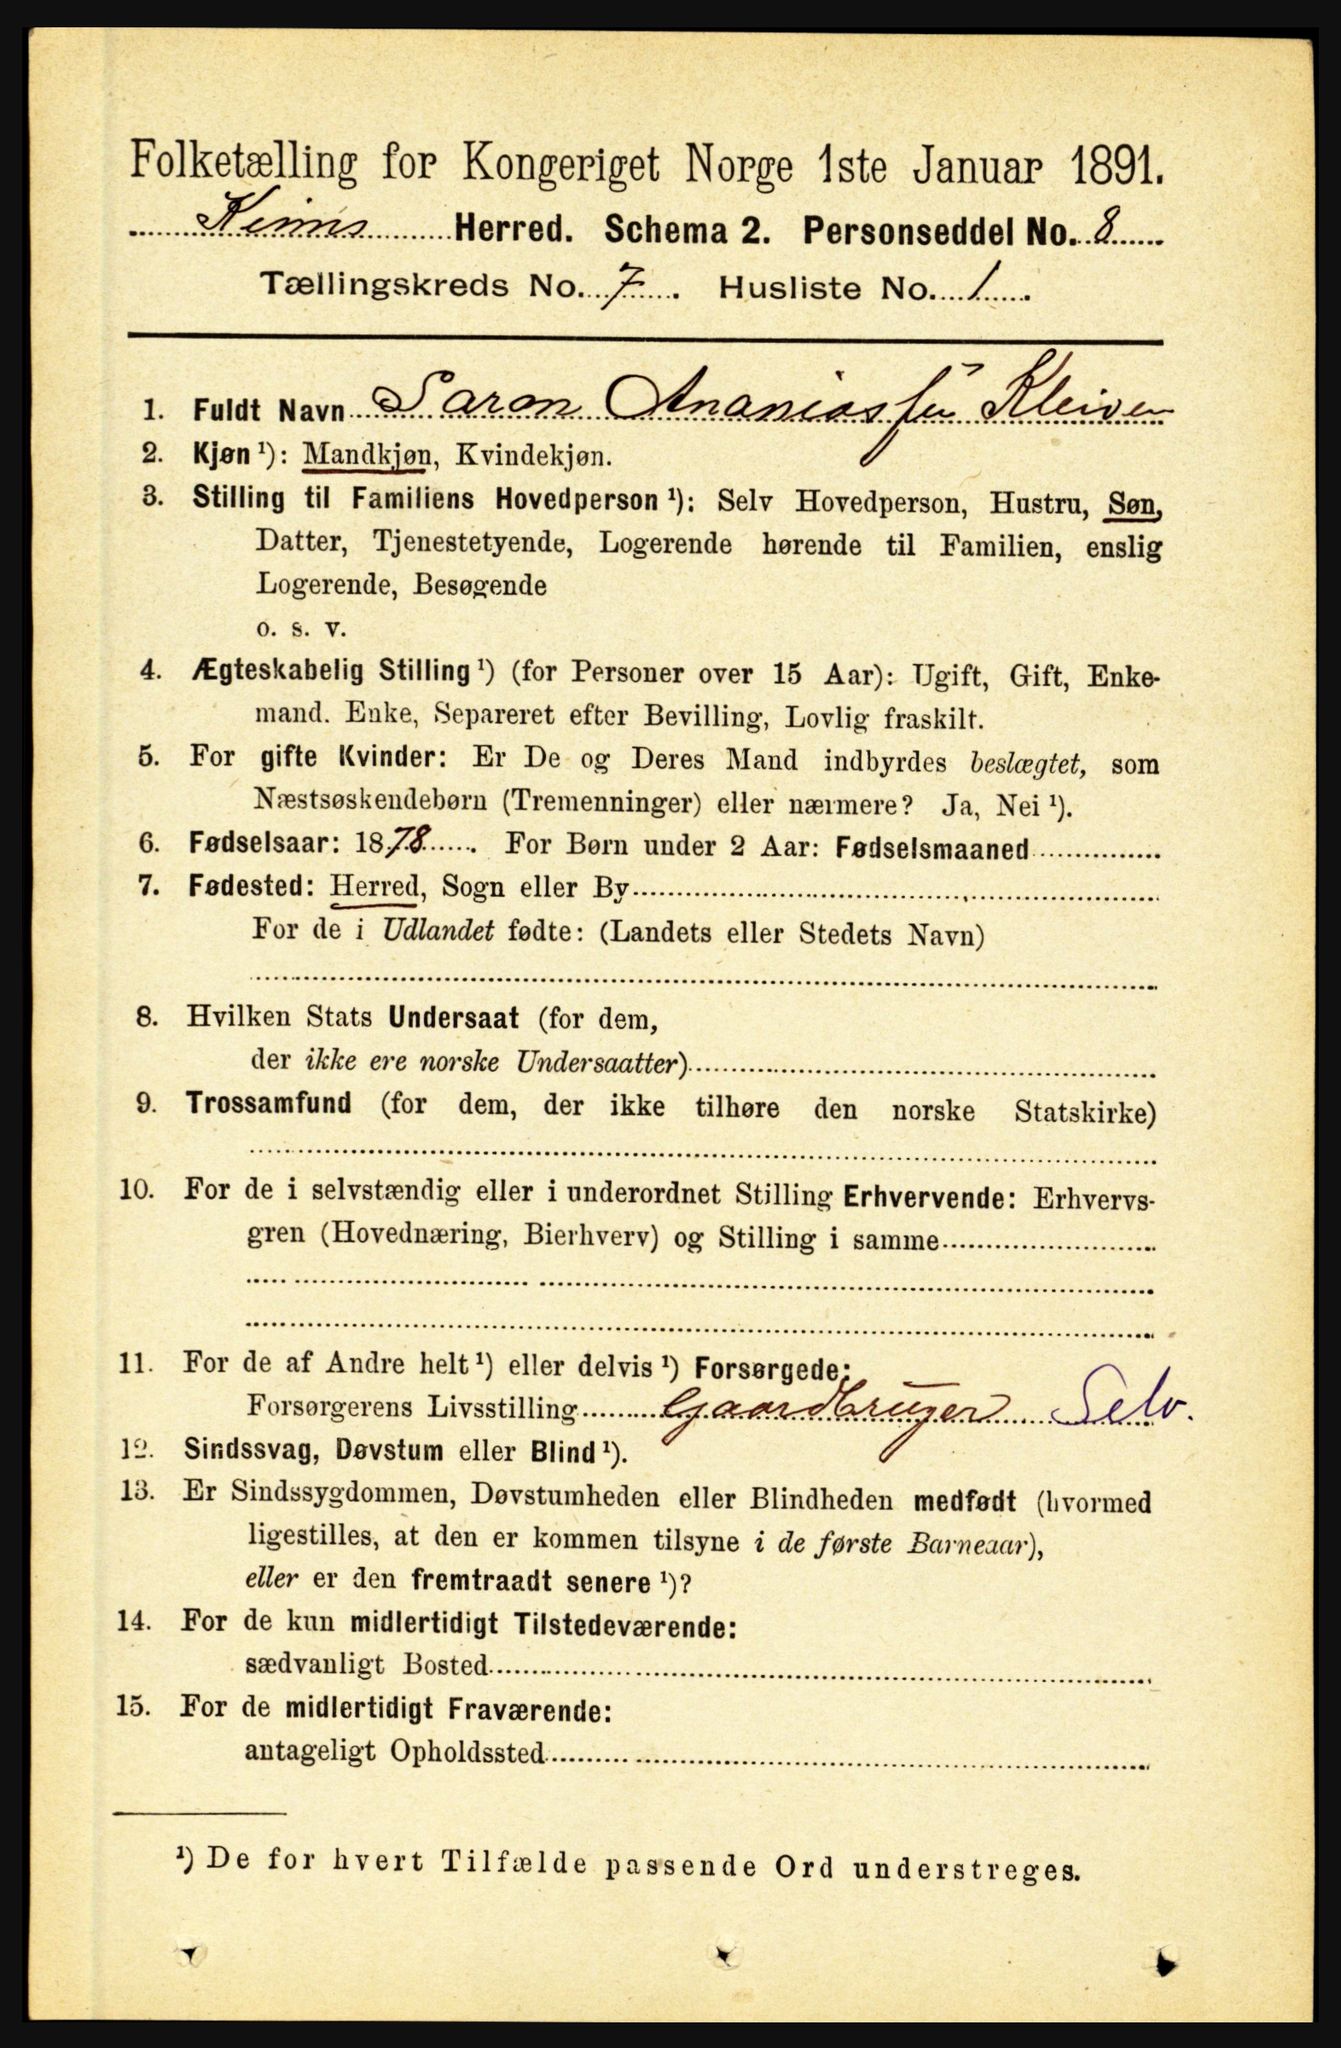 Folketælling for Kongeriget Norge 1ste Januar 1891.
Kinns Herred. Schema 2. Personseddel No. 8
Tællingskreds No. 7. Husliste No. 1.
1. Fuldt Navn Saron Ananiassen Kleiven
2. Kjøn ¹): Mandkjøn, Kvindekjøn.
3. Stilling til Familiens Hovedperson ¹): Selv Hovedperson, Hustru, Søn,
Datter, Tjenestetyende, Logerende hørende til Familien, enslig
Logerende, Besøgende
o. s. v.
4. Ægteskabelig Stilling ¹) (for Personer over 15 Aar): Ugift, Gift, Enke-
mand. Enke, Separeret efter Bevilling, Lovlig fraskilt.
5. For gifte Kvinder: Er De og Deres Mand indbyrdes beslægtet, som
Næstsøskendebørn (Tremenninger) eller nærmere? Ja, Nei ¹).
6. Fødselsaar: 1878. For Børn under 2 Aar: Fødselsmaaned
7. Fødested: Herred, Sogn eller By
For de i Udlandet fødte: (Landets eller Stedets Navn)
8. Hvilken Stats Undersaat (for dem,
der ikke ere norske Undersaatter)
9. Trossamfund (for dem, der ikke tilhøre den norske Statskirke)
10. For de i selvstændig eller i underordnet Stilling Erhvervende: Erhvervs-
gren (Hovednæring, Bierhverv) og Stilling i samme
11. For de af Andre helt ¹) eller delvis ¹) Forsørgede:
Forsørgerens Livsstilling Gaardbruger Selv.
12. Sindssvag, Døvstum eller Blind ¹).
13. Er Sindssygdommen, Døvstumheden eller Blindheden medfødt (hvormed
ligestilles, at den er kommen tilsyne i de første Barneaar),
eller er den fremtraadt senere ¹)?
14. For de kun midlertidigt Tilstedeværende:
sædvanligt Bosted
15. For de midlertidigt Fraværende:
antageligt Opholdssted
¹) De for hvert Tilfælde passende Ord understreges.